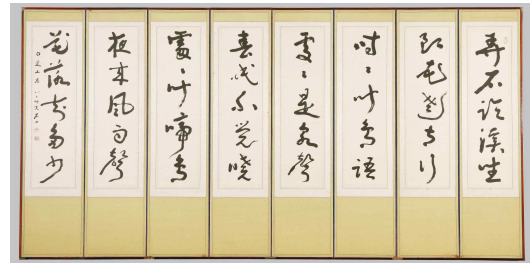 弄石臨溪坐
尋花繞寺行
時々聞鳥語
處々是泉聲
春眠不覺曉
處々聞啼鳥
夜來風雨聲
花落知多少